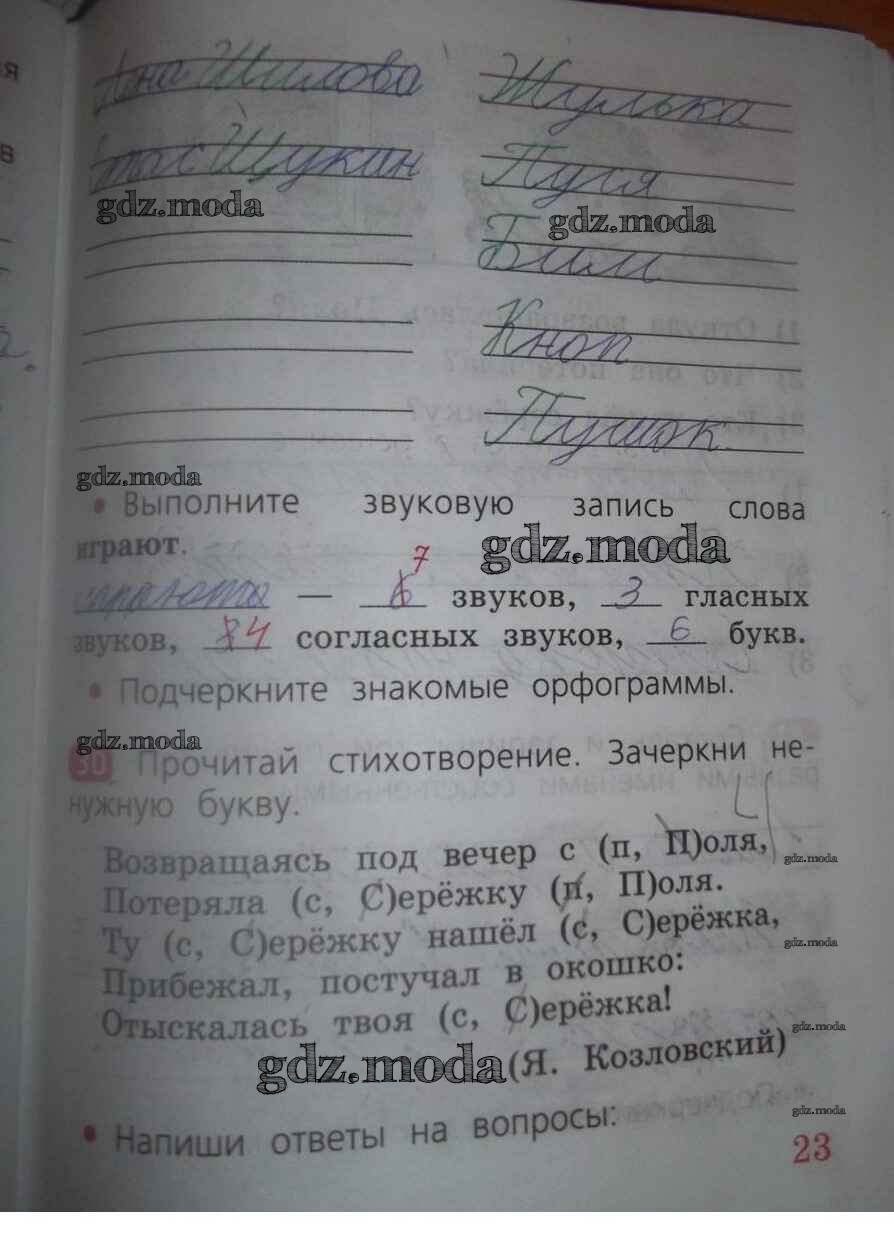 на Шилова Жулька
Щукин Пуля
gdz.moda gdz.moda
Бим
Кноп
Пушок
gdz.moda
• Выполните звуковую запись слова
играют. gdz.moda
7
— 6 звуков, 3 гласных
звуков, 4 согласных звуков, 6 букв.
• Подчеркните знакомые орфограммы.
gdz.moda
30 Прочитай стихотворение. Зачеркни не-
нужную букву.
Возвращаясь под вечер с (п, П)оля, gdz.moda
Потеряла (с, С)ерёжку (п, П)оля.
Ту (с, С)ерёжку нашёл (с, С)ерёжка, gdz.moda
Прибежал, постучал в окошко:
Отыскалась твоя (с, С)ерёжка! gdz.moda
gdz.moda (Я. Козловский)
• Напиши ответы на вопросы: gdz.moda
23